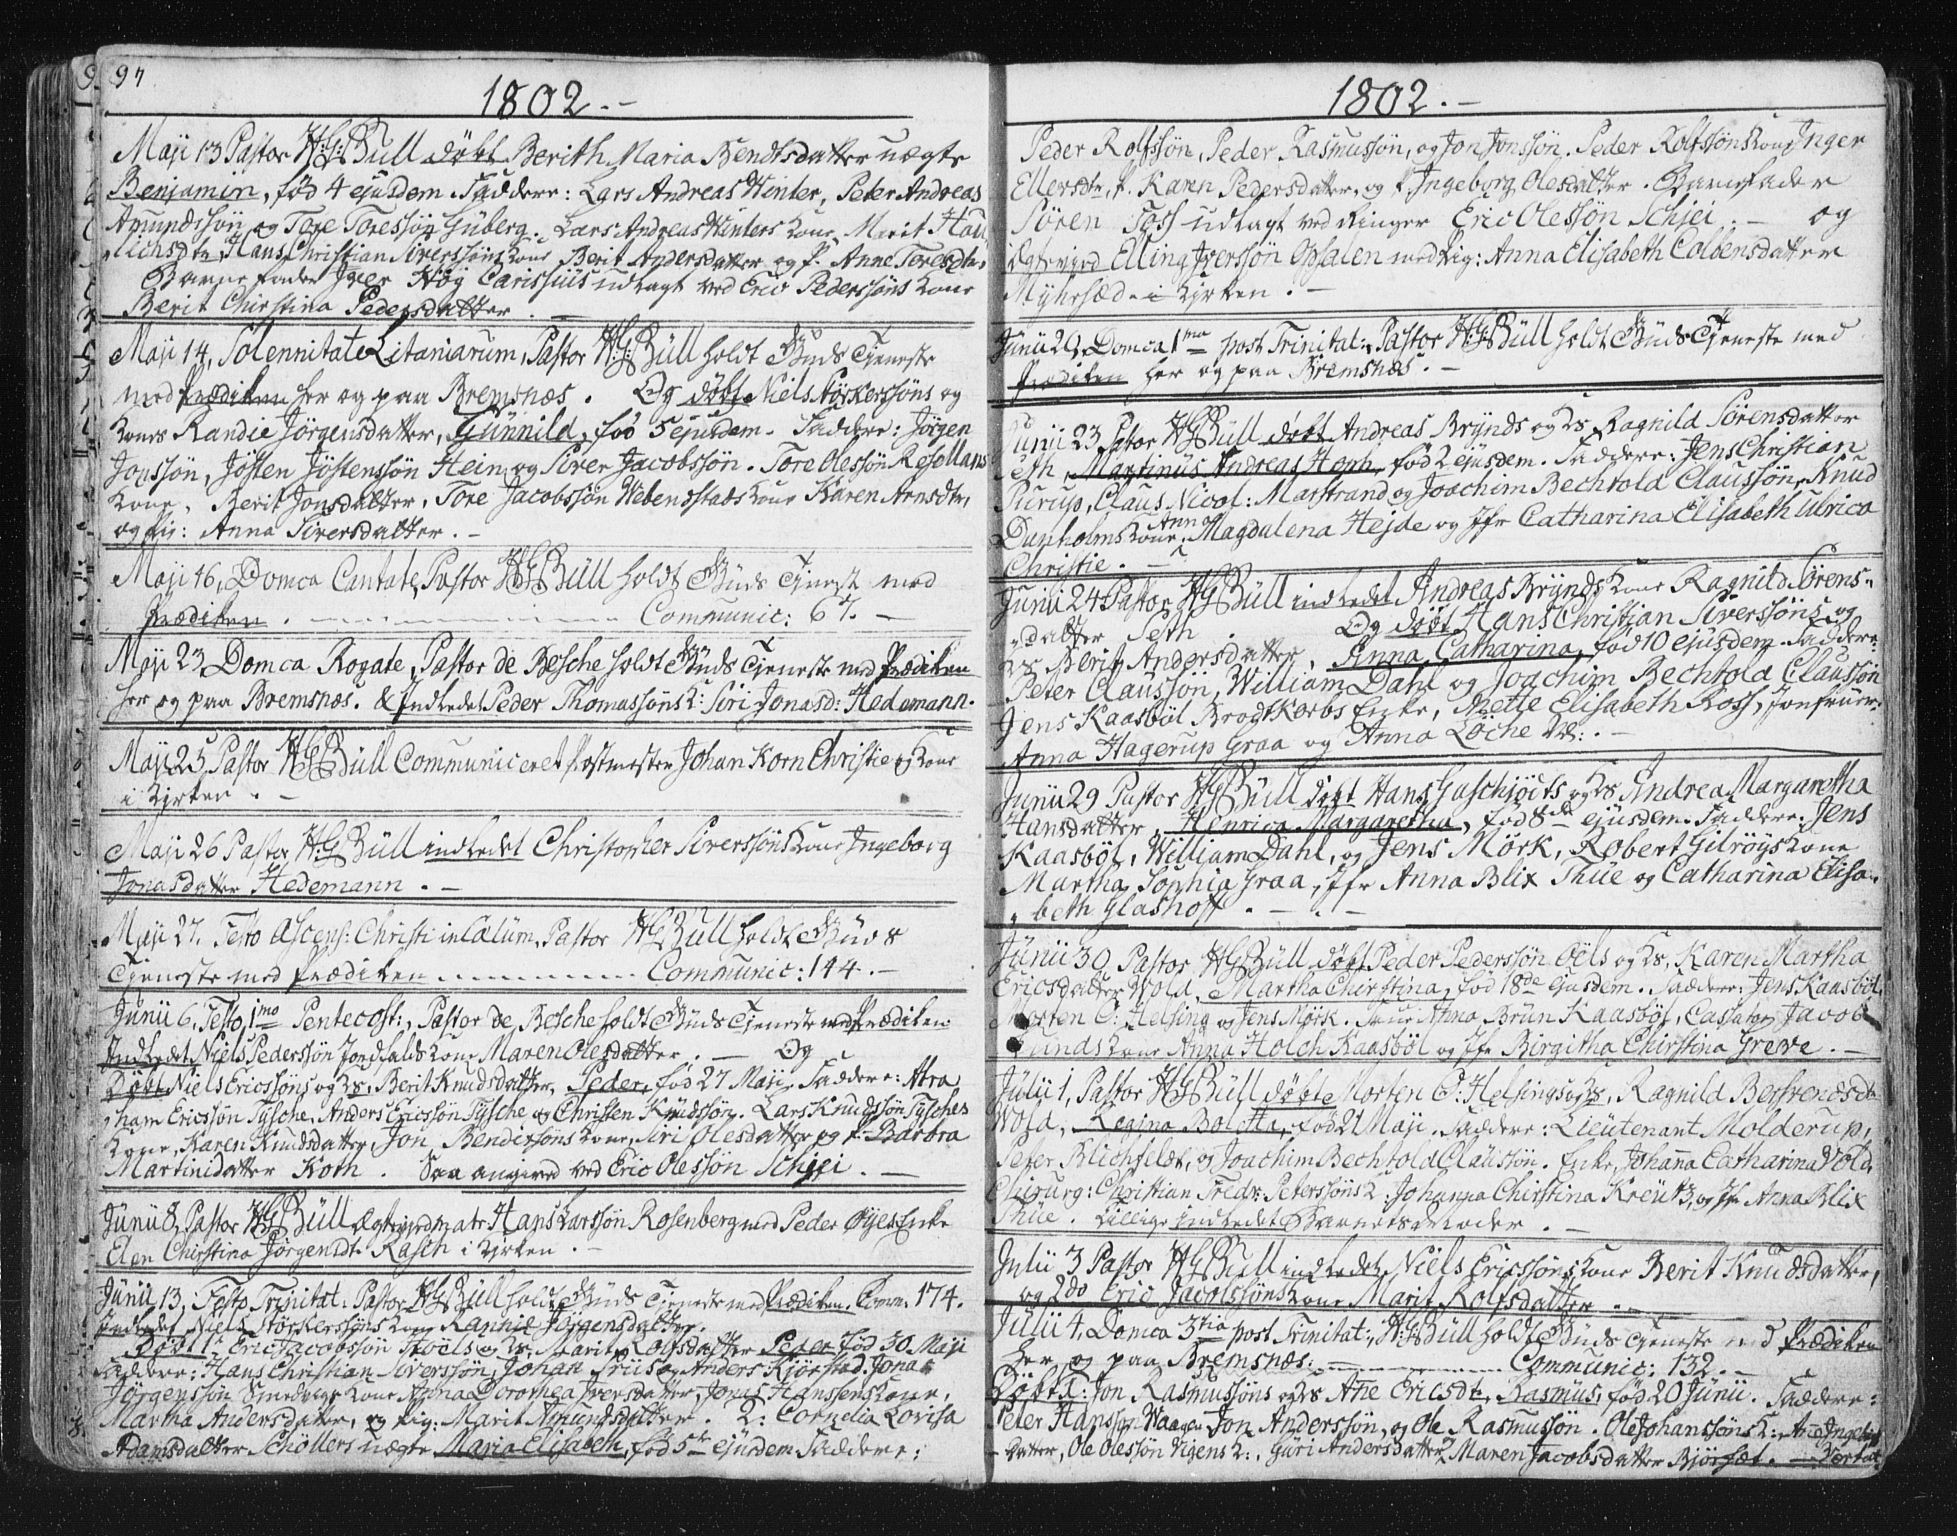 97
1802.-
Maji 13 Pastor H:G:Büll döbt Berith Maria Bendtsdatter uægte
Benjamin, fød 4 ejusdem. Faddere: Lars Andreas Winter, Peter Andreas
Amundssön og Tore Toressön Güberg. Lars Andreas Winters kone, Marit Hau
richsdtr, Hans Christian Siverssöns kone Berit Andersdatter og P. Anne Toresdtr.
Barnefader Iver Hög Carissius udlagt ved Eric Pederssöns kone
Berit Christina Pedersdatter.
Maji 14, Solennitate Litaniarum, Pastor H:G:Büll holdt Guds Tjeneste
med Prædiken her og paa Bremsnæs. Og döbt Niels Störkerssöns og
kones Randie Jörgensdatter, Gunnild, fød 5 ejusdem. Faddere: Jörgen
Jonssön, Jösten Jöstenssön Hein og Siver Jacobssön. Tore Olessön Resellans
kone, Berit Jonsdatter, Tore Jacobssön Webenstads kone Karen Arnsdtr,
og pig: Anna Siversdatter.-
Maji 16, Domca Cantate, Pastor HGBüll holdt Guds Tjenest med
Prædiken. Communic: 67.-
Maji 23 Domca Rogate, Pastor de Besche holdt Guds Tjeneste med Prædiken
her og paa Bremsnæs. & Indledet Peder Thomassöns K: Siri Jonasd: Hedemann.
Maji 25 Pastor HGBüll Communiceret Postmester Johan Korn Christie og kone
i kirken.-
Maji 26 Pastor H:GBüll indledet Christopher Siverssöns kone Ingeborg
Jonasdatter Hedemann.-
Maji 27. Festo Ascens: Christi in Cælum, Pastor HGBüll holdt Guds
Tjeneste med Prædiken Communic: 144.-
Junii 6, Festo 1mo Pentecost:, Pastor de Besche holdt Guds Tjeneste med Prædiken.
Indledet Niels Pederssön Jondfalds kone Maren Olesdatter.- Og
Döbt Niels Ericssöns og Ks. Berit Knudsdatter, Peder, fød 27 Maji. Faddere: Abra
ham Ericssön Tÿsche, Anders Ericssön Tÿsche og Christen Knudssön. Lars Knudssön Tÿsches
kone, Karen Knudsdatter, Jon Bendixsöns kone, Siri Olesdatter og P. Barbra
Martinidatter Koth. Saa angived ved Eric Olessön Schjei.-
Junii 8, Pastor HGBüll Ægteviedmate Hans Larssön Rosenberg med Peder Öyes Enke
Elen Christina Jörgensdt. Rasch i kirken.-
Junii 13, Festo Trinitat: Pastor HGBüll holdt Guds Tjeneste med Prædiken. Com: 174.
Indledet Niels Störkerssöns kone Randie Jörgensdatter.
Döbt Eric Jacobssön Stöels og Ks. Marit Rolfsdatter Peder fød 30 Maji
Faddere: Hans Christian Siverssön, Johan Friis og Anders Kjörstad. Jonas
Jörgenssön Smedvigs kone Anna Dorothea Iversdatter, Jonas Hanssens kone,
Martha Andersdatter, og Pig: Marit Amundsdatter. 2: Cornelia Lovisa
Adamsdatter Schöllers uægte Maria Elisabeth, fød 5te ejusdem. Faddere:
1802.-
Peder Rolfssön, Peder Rasmussön, og Jon Jonssön. Peder Rolfssöns kone Inger
Ellersdtr, P. Karen Pedersdatter, og P. Ingeborg Olesdatter. Barnefader
Sören Foss udlagt ved Ringer Eric Olessön Schjei.- og
Ægtevied Elling Iverssön Opsalen med Pig: Anna Elisabeth Colbensdatter
Myhrsæd i kirken.-
Junii 20, Domca 1ma post Trinitat: Pastor H:G:Büll holdt Guds Tjeneste med
Prædiken her og paa Bremsnæs.-
Junii 23 Pastor HGBüll döbt Andreas Brÿnds og Ks Ragnild Sörensdatter
Seth, Martinus Andreas Horn fød 2 ejusdem. Faddere: Jens Christian
Purup, Claus Nicol: Marstrand og Joachim Bechtold Claussön. Knud
Danholms kone Anna Magdalena Hejde og Jfr Catharina Elisabeth Ulrica
Christie.-
Junii 24 Pastor HGBüll indledet Andreas Brÿnds kone Ragnild Sörens-
datter Seth. Og döbt Hans Christian Siverssöns og
Ks Berit Andersdatter, Anna Catharina, fød 10 ejusdem. Faddere:
Peter Claussön, William Dahl og Joachim Bechtold Claussön
Jens Kaasböl Brodtkorbs Enke, Mette Elisabeth Ross, Jomfruer:
Anna Hagerup Graa og Anna Löche.-
Junii 29 Pastor HGBüll döbt Hans Gaschjödts og Ks. Andrea Margaretha
Hansdatter, Henrica Margaretha, fød 8de ejusdem. Faddere: Jens
Kaasböl, William Dahl, og Jens Mörk, Robert Gilröys kone
Martha Sophia Graa, Jfr Anna Blix Thue og Catharina Elisa-
beth Glashoff.-.-
Junii 30 Pastor HGBüll döbt Peder Pederssön Oëls og Ks, Karen Martha
Ericsdatter Wold, Martha Christina, fød 18de ejusdem. Faddere: Jens Kaasböl,
Morten C: Helsing og Jens Mörk. Frue Anna Brün Kaasböl, Cassator Jacob
Lunds kone Anna Holck Kaasböl og Jfr Birgitha Christina Greve.-
Julii 1, Pastor HGBüll döbte Morten C: Helsings og Ks, Ragnild Berfvendsdtr
Vold, Regina Boletta, fød 21 Maji. Faddere: Lieutenant Molderup,
Peter Blichfeldt, og Joachim Bechtold Claussön. Enke, Johanna Catharina Vold,
Chirurg: Christian Fredr: Peterssöns K: Johanna Christina Kreütz, og Jfr Anna Blix
Thue. tillige indledet Barnets Moder.-
Julii 3 Pastor HGBüll indledet Niels Ericssöns kone Berit Knudsdatter,
og 2do Eric Jacobssöns kone Marit Rolfsdatter.-
Julii 4, Domca 3tia post Trinitat:, H:GBüll holdt Guds Tjeneste med Prædiken
her og paa Bremsnæs: Communic: 132.-
Döbte: Jon Rasmussöns og Ks Ane Ericsdtr, Rasmus, fød 20 Junii. Faddere:
Peter Hanssön Waagen Jon Anderssön, og Ole Rasmussön. Ole Johanssöns K: Ane Ingebrigt
datter, Ole Olessön Vigens K:, Guri Andersdatter, Maren Jacobsdatter Bjørsæt.-